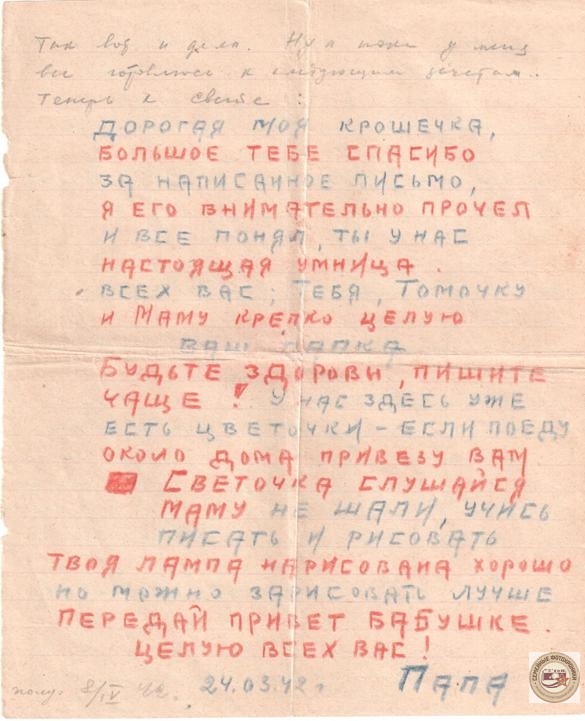 Так вот и дела. Ну а пока у меня
все готовлюсь к следующим зачетам..
Теперь к Свете :
ДОРОГАЯ МОЯ КРОШЕЧКА,
БОЛЬШОЕ ТЕБЕ СПАСИБО
ЗА НАПИСАННОЕ ПИСЬМО,
Я ЕГО ВНИМАТЕЛЬНО ПРОЧЕЛ
И ВСЕ ПОНЯЛ, ТЫ У НАС
НАСТОЯЩАЯ УМНИЦА.
ВСЕХ ВАС; ТЕБЯ, ТОМОЧКУ
И МАМУ КРЕПКО ЦЕЛУЮ
ВАШ ПАПКА
БУДЬТЕ ЗДОРОВЫ, ПИШИТЕ
ЧАЩЕ! У НАС ЗДЕСЬ УЖЕ
ЕСТЬ ЦВЕТОЧКИ - ЕСЛИ ПОЕДУ
ОКОЛО ДОМА ПРИВЕЗУ ВАМ
СВЕТОЧКА СЛУШАЙСЯ
МАМУ НЕ ШАЛИ, УЧИСЬ
ПИСАТЬ И РИСОВАТЬ
ТВОЯ ЛАМПА НАРИСОВАНА ХОРОШО
НО МОЖНО ЗАРИСОВАТЬ ЛУЧШЕ
ПЕРЕДАЙ ПРИВЕТ БАБУШКЕ.
ЦЕЛУЮ ВСЕХ ВАС!
получ 8/IV 42. 24.03.42 г ПАПА